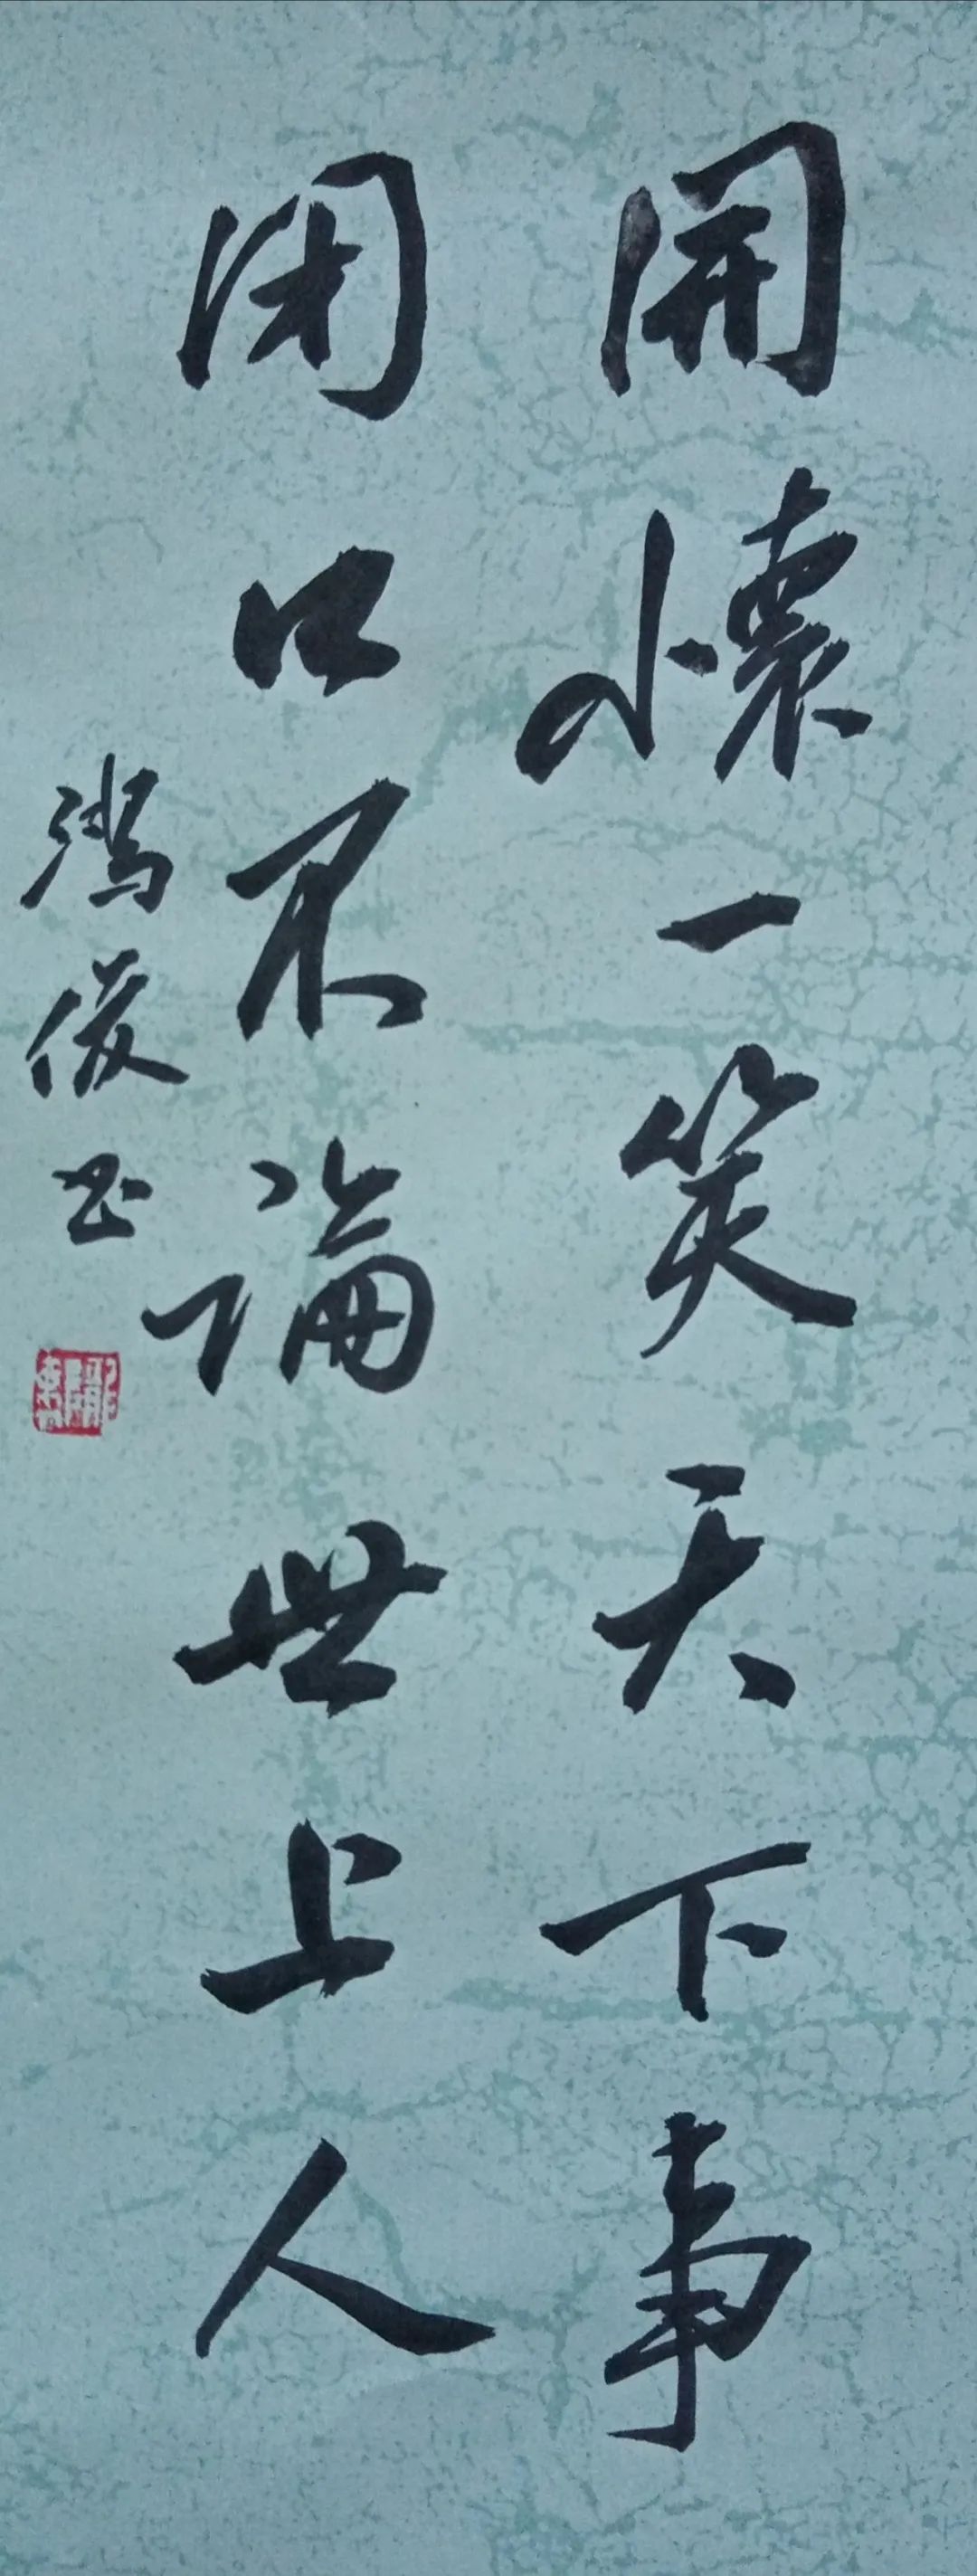 開懷一笑天下事
閉口不論世上人
鴻俊书